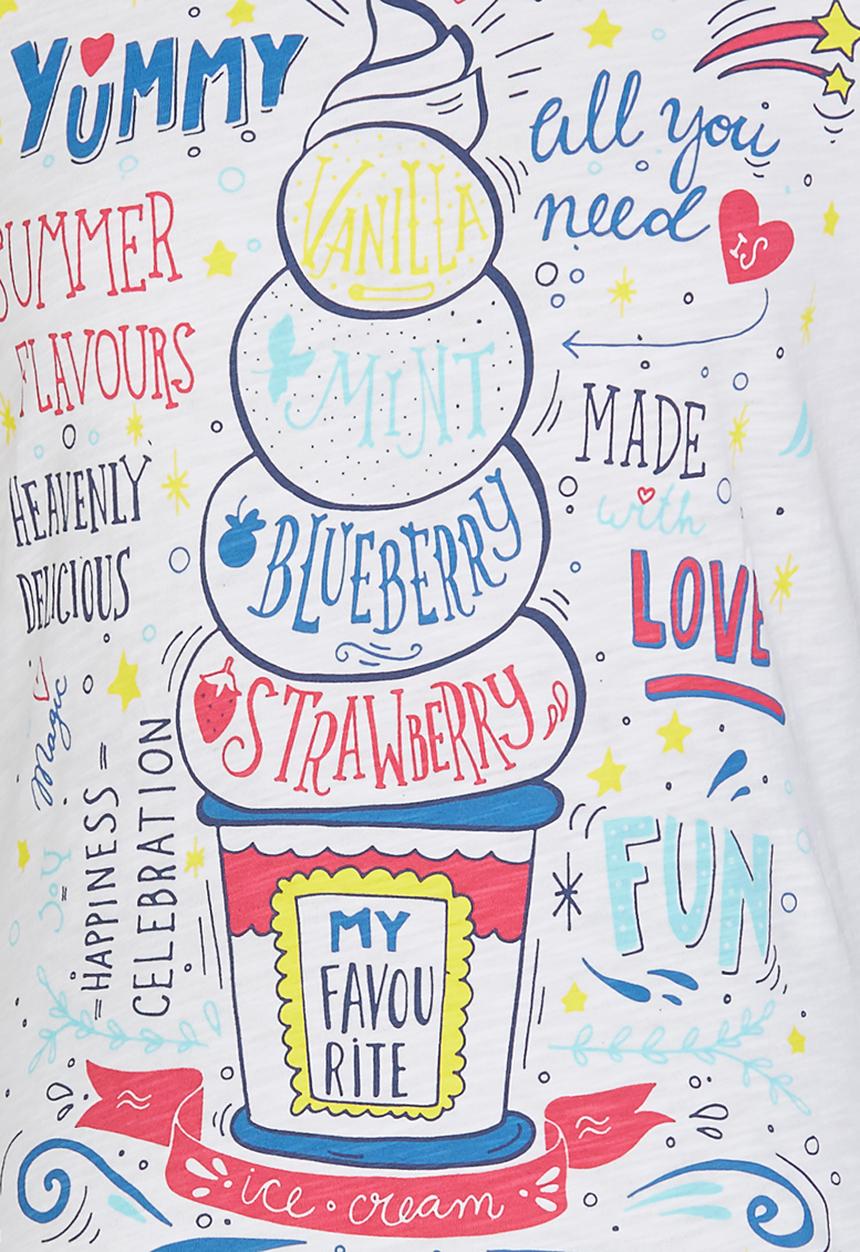 YUMMY
all you
need
IS
VANILLA
SUMMER
FLAVOURS
MINT
MADE
with
LOVE
HEAVENLY
DELICIOUS
BLUEBERRY
STRAWBERRY
Magic
Joy
=HAPPINESS=
CELEBRATION
FUN
MY
FAVOU
RITE
ice·cream